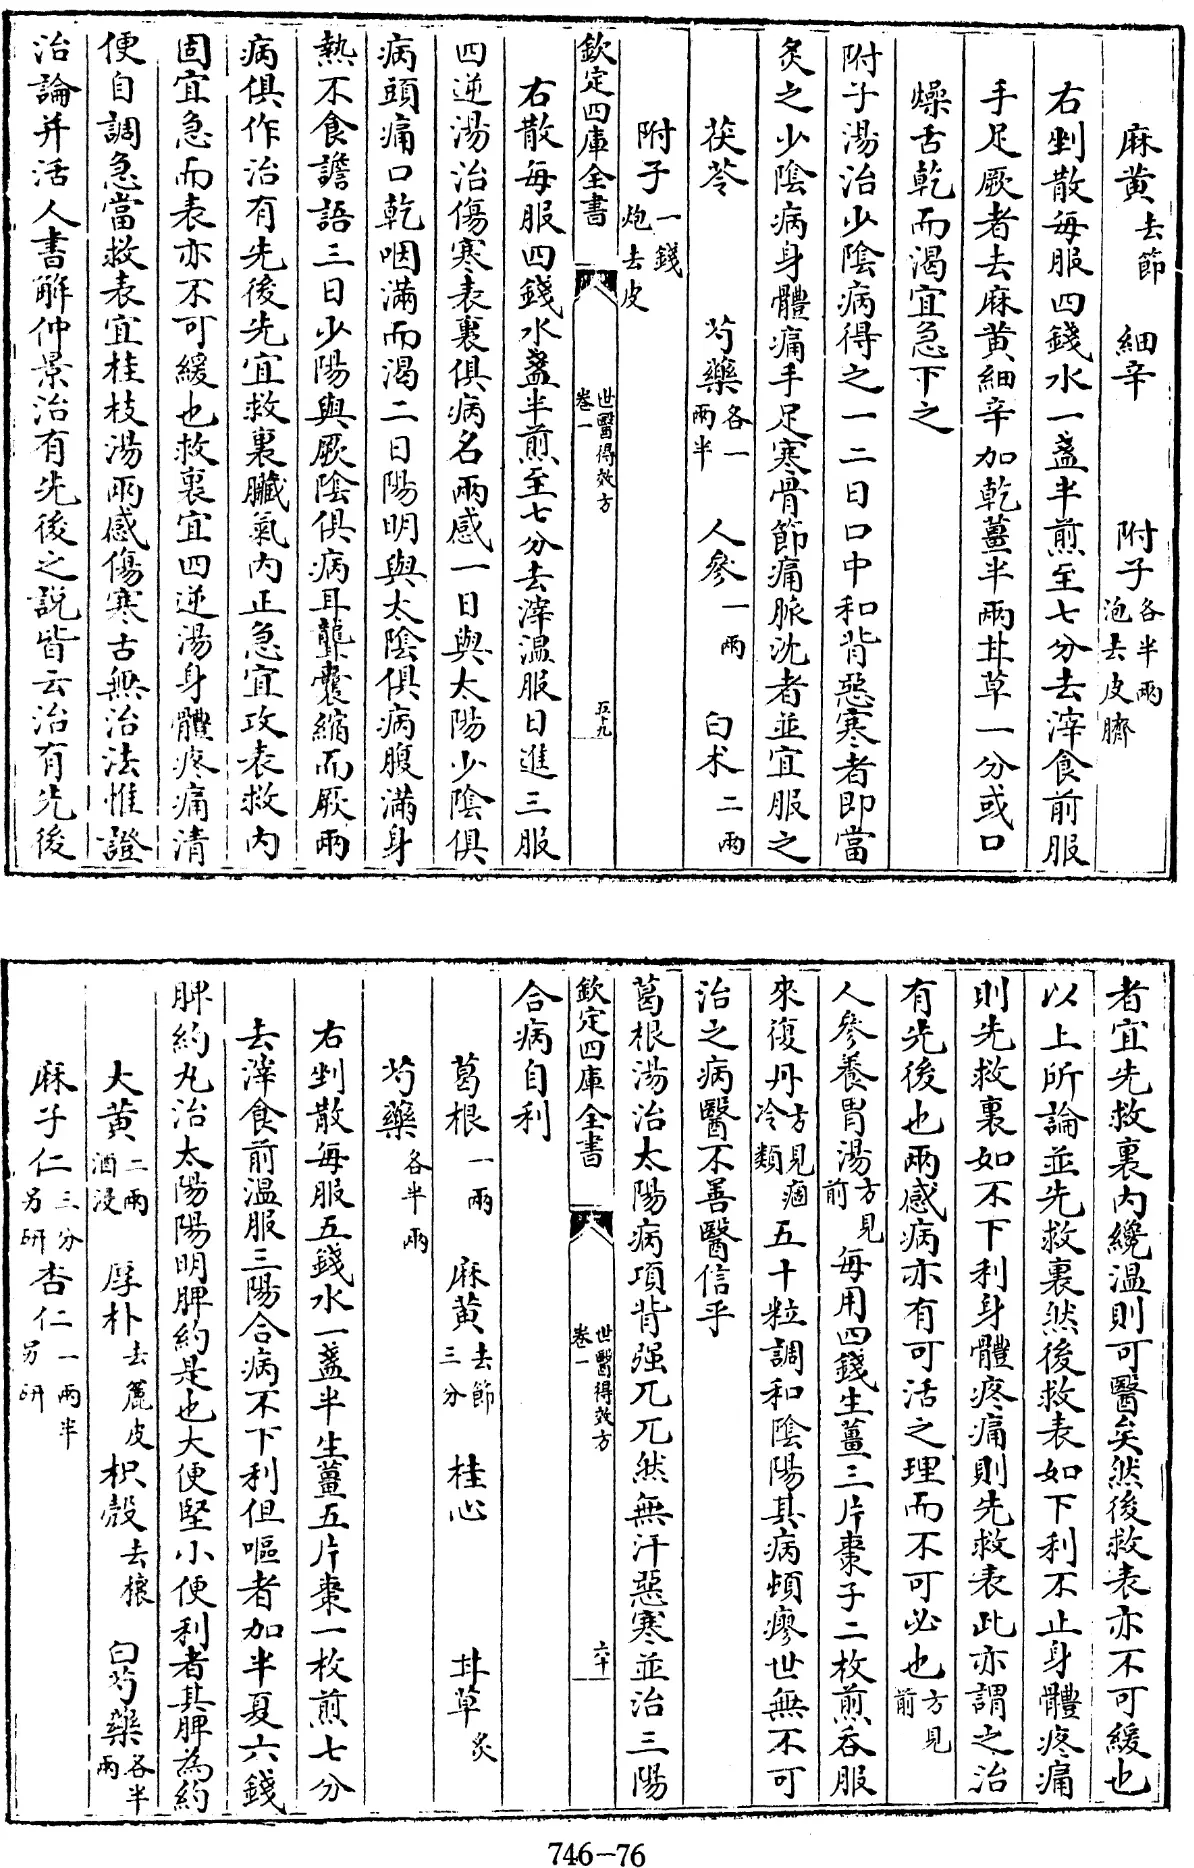 麻黄去節 細辛 附子各半兩泡去皮臍
右剉散每服四錢水一盞半煎至七分去滓食前服
手足厥者去麻黄細辛加乾薑半兩甘草一分或口
燥舌乾而渴宜急下之
附子湯治少陰病得之一二日口中和背惡寒者即當
炙之少陰病身體痛手足寒骨節痛脈沈者並宜服之
茯苓 芍藥各一兩半 人參一兩 白术二兩
附子一錢炮去皮
欽定四庫全書 世醫得效方卷一 五十九
右散每服四錢水盞半煎至七分去滓温服日進三服
四逆湯治傷寒表裏俱病名兩感一日與太陽少陰俱
病頭痛口乾咽滿而渴二日陽明與太陰俱病腹滿身
熱不食譫語三日少陽與厥陰俱病耳聾囊縮而厥兩
病俱作治有先後先宜救裏臟氣内正急宜攻表救内
固宜急而表亦不可緩也救裏宜四逆湯身體疼痛清
便自調急當救表宜桂枝湯兩感傷寒古無治法惟證
治論并活人書解仲景治有先後之説皆云治有先後
者宜先救裏内纔温則可醫矣然後救表亦不可緩也
以上所論並先救裏然後救表如下利不止身體疼痛
則先救裏如不下利身體疼痛則先救表此亦謂之治
有先後也兩感病亦有可活之理而不可必也方見前
人參養胃湯方見前每用四錢生薑三片棗子二枚煎吞服
來復丹方見痼冷類五十粒調和陰陽其病頓瘳世無不可
治之病醫不善醫信乎
葛根湯治太陽病項背强兀兀然無汗惡寒並治三陽
欽定四庫全書 世醫得效方卷一 六十
合病自利
葛根一兩 麻黄去節三分 桂心 甘草炙
芍藥各半兩
右剉散每服五錢水一盞半生薑五片棗一枚煎七分
去滓食前温服三陽合病不下利但嘔者加半夏六錢
脾約丸治太陽陽明脾約是也大便堅小便利者其脾為約
大黄二兩酒浸 厚朴去麄皮 枳殼去穰 白芍藥各半兩
麻子仁二三分另研 杏仁一兩半另研
746-76